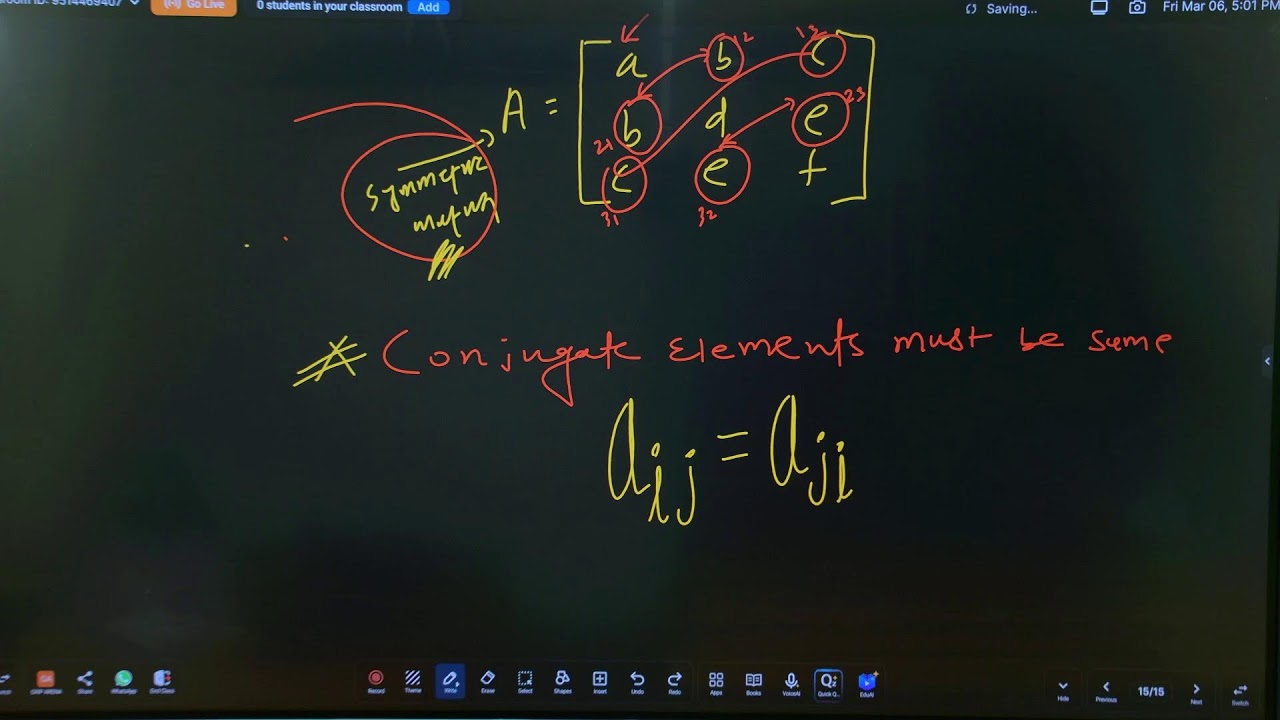 room ID: 9314469407 Go Live 0 students in your classroom Add Saving... Fri Mar 06, 5:01 PM
A = [ a b 12 c 13
21 b d e 23
c 31 e 32 f ]
symmetric
matrix
Conjugate Elements must be same
aij = aji
Share WhatsApp End Class Record Theme Write Erase Select Shapes Insert Undo Redo Apps Books VoiceAI Quick Q... EduAI Hide Previous 15/15 Next Switch